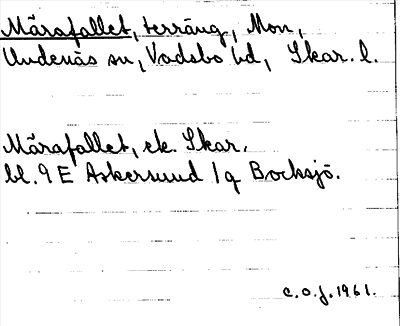 Märafallet, terräng, Mon,
Undenäs sn, Vadsbo hd, Skar. l.
Märafallet, ek. Skar.
bl. 9 E Askersund 1g Bocksjö.
c.o.f. 1961.